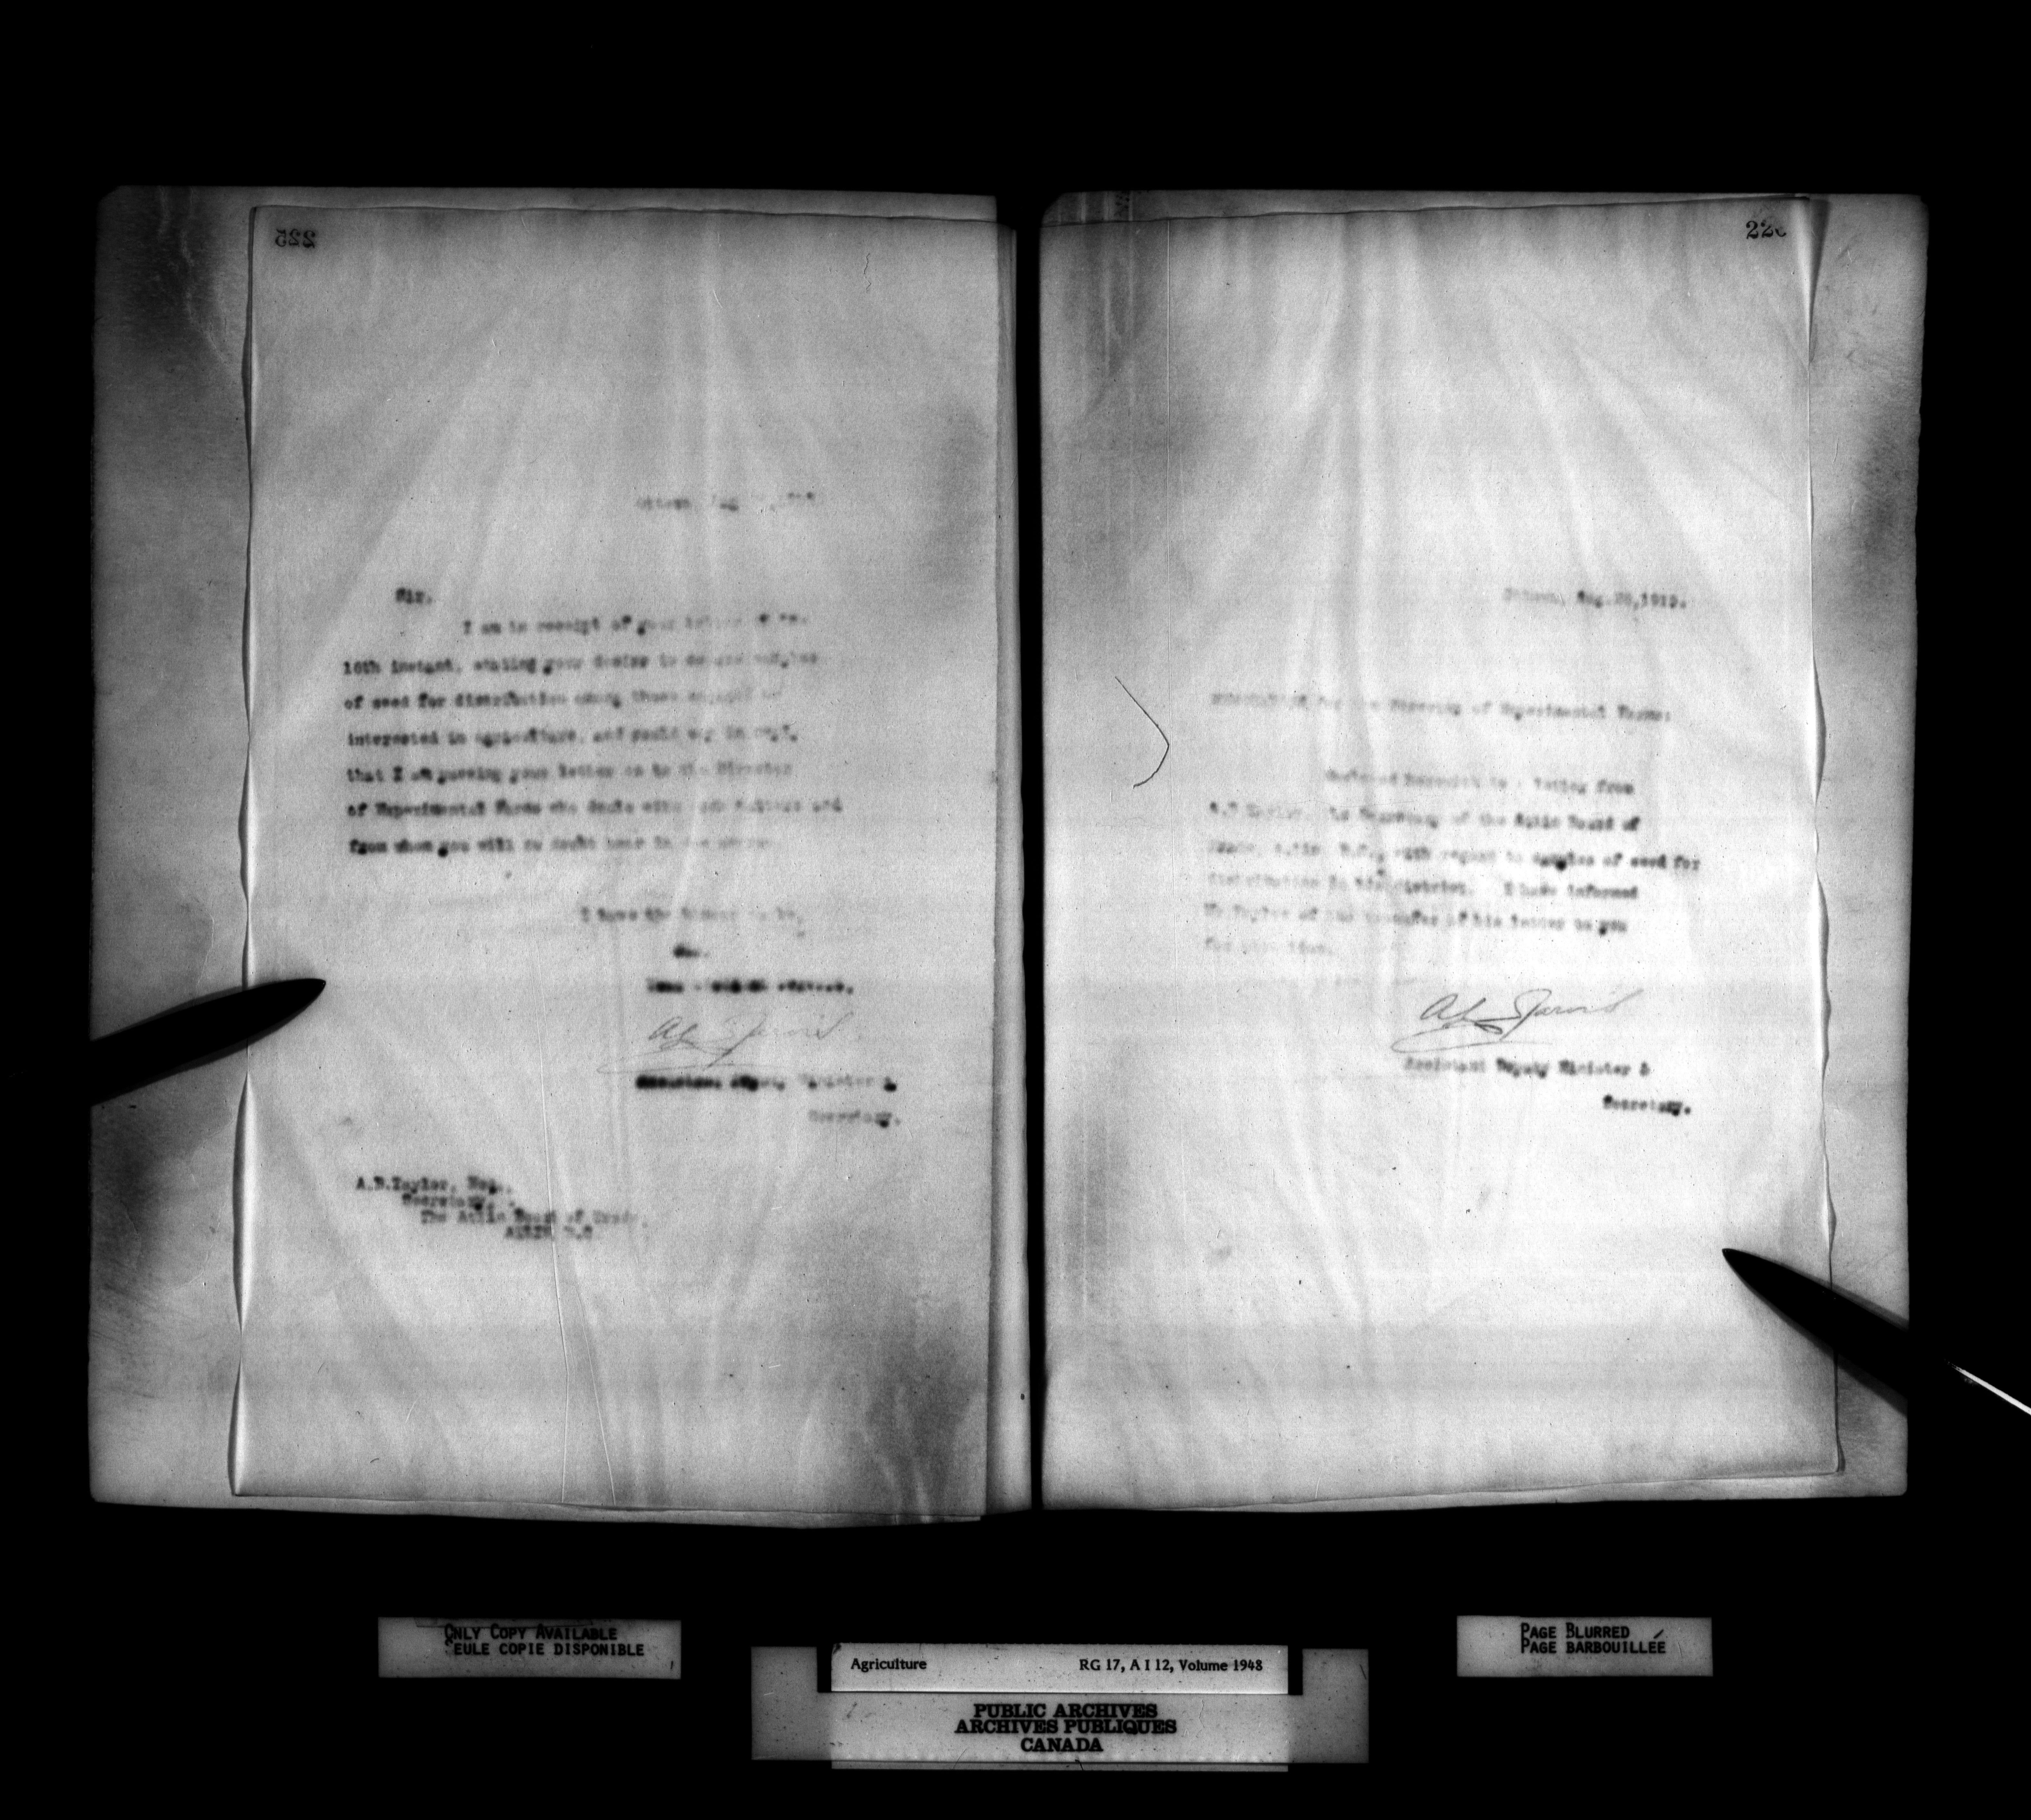 225
Ottawa, Aug
Sir,
I am in receipt of your letter of the
16th instant, stating your desire to
of seed for distribution among those engaged
interested in agriculture, and would say in reply
that I am passing your letter on to the Director
of Experimental Farms who deals with such matters and
from whom you will no doubt hear in due course.
I have the honour to be,
Sir,
Your obedient servant,
Assistant Deputy Minister &
Secretary.
A.B.Taylor, Esq.,
Secretary,
The Atlin Board of Trade,
ATLIN, B.C.
Ottawa, Aug.
MEMORANDUM for the Director of Experimental Farms:
Enclosed herewith is a letter from
Taylor, the Secretary of the Atlin Board of
Trade, Atlin, B.C., with regard to samples of seed for
distribution in his district. I have informed
Mr Taylor of the transfer of his letter to you
for attention.
Assistant Deputy Minister &
Secretary.
ONLY COPY AVAILABLE
SEULE COPIE DISPONIBLE
PAGE BLURRED
PAGE BARBOUILLÉE
Agriculture RG 17, A I 12, Volume 1948
PUBLIC ARCHIVES
ARCHIVES PUBLIQUES
CANADA